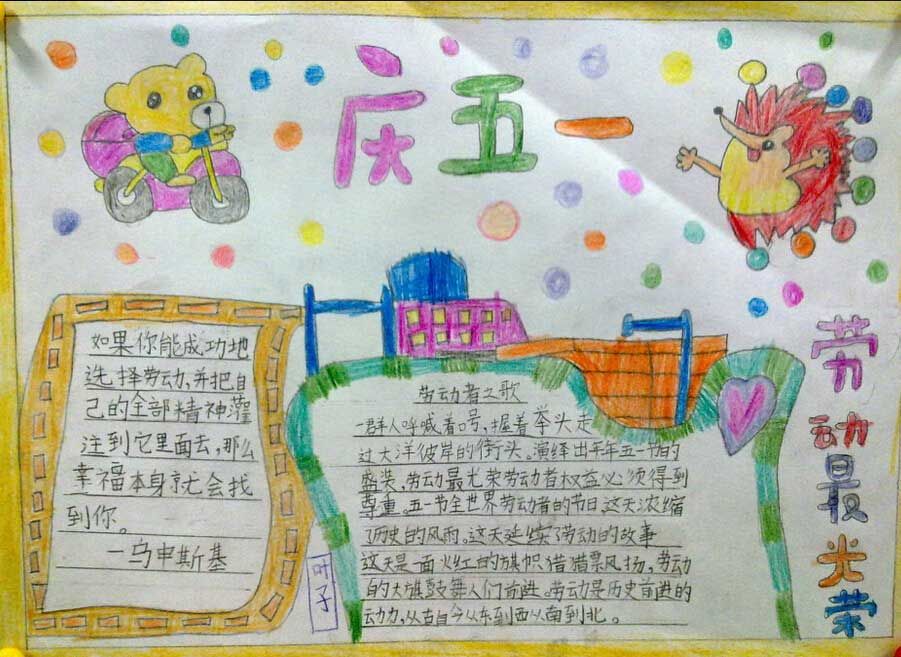 庆五一
如果你能成功地
选择劳动,并把自
己的全部精神灌
注到它里面去,那么
幸福本身就会找
到你。
—乌申斯基
劳动者之歌
一群人呼喊着口号,握着拳头走
过大洋彼岸的街头。演绎出千年五一节的
盛装,劳动最光荣劳动者权益必须得到
尊重。五一节全世界劳动者的节日这天浓缩
了历史的风雨。这天延续了劳动的故事
这天是一面火红的旗帜猎猎飘扬,劳动
的大旗鼓舞人们前进。劳动是历史前进的
动力,从古自今从东到西从南到北。
叶子
劳动最光荣